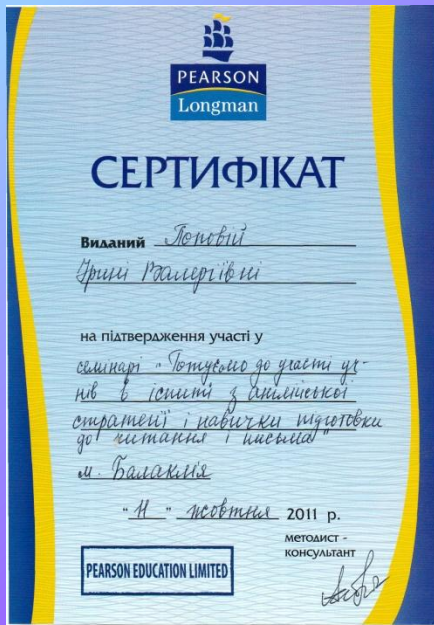 PEARSON
Longman
СЕРТИФІКАТ
Виданий Поповій
Ірині Валеріївні
на підтвердження участі у
семінарі „Готуємо до участі уч-
нів в іспиті з англійської
стратегії і навички підготовки
до читання і письма"
м. Балаклія
"11" жовтня 2011 р.
методист -
консультант
PEARSON EDUCATION LIMITED